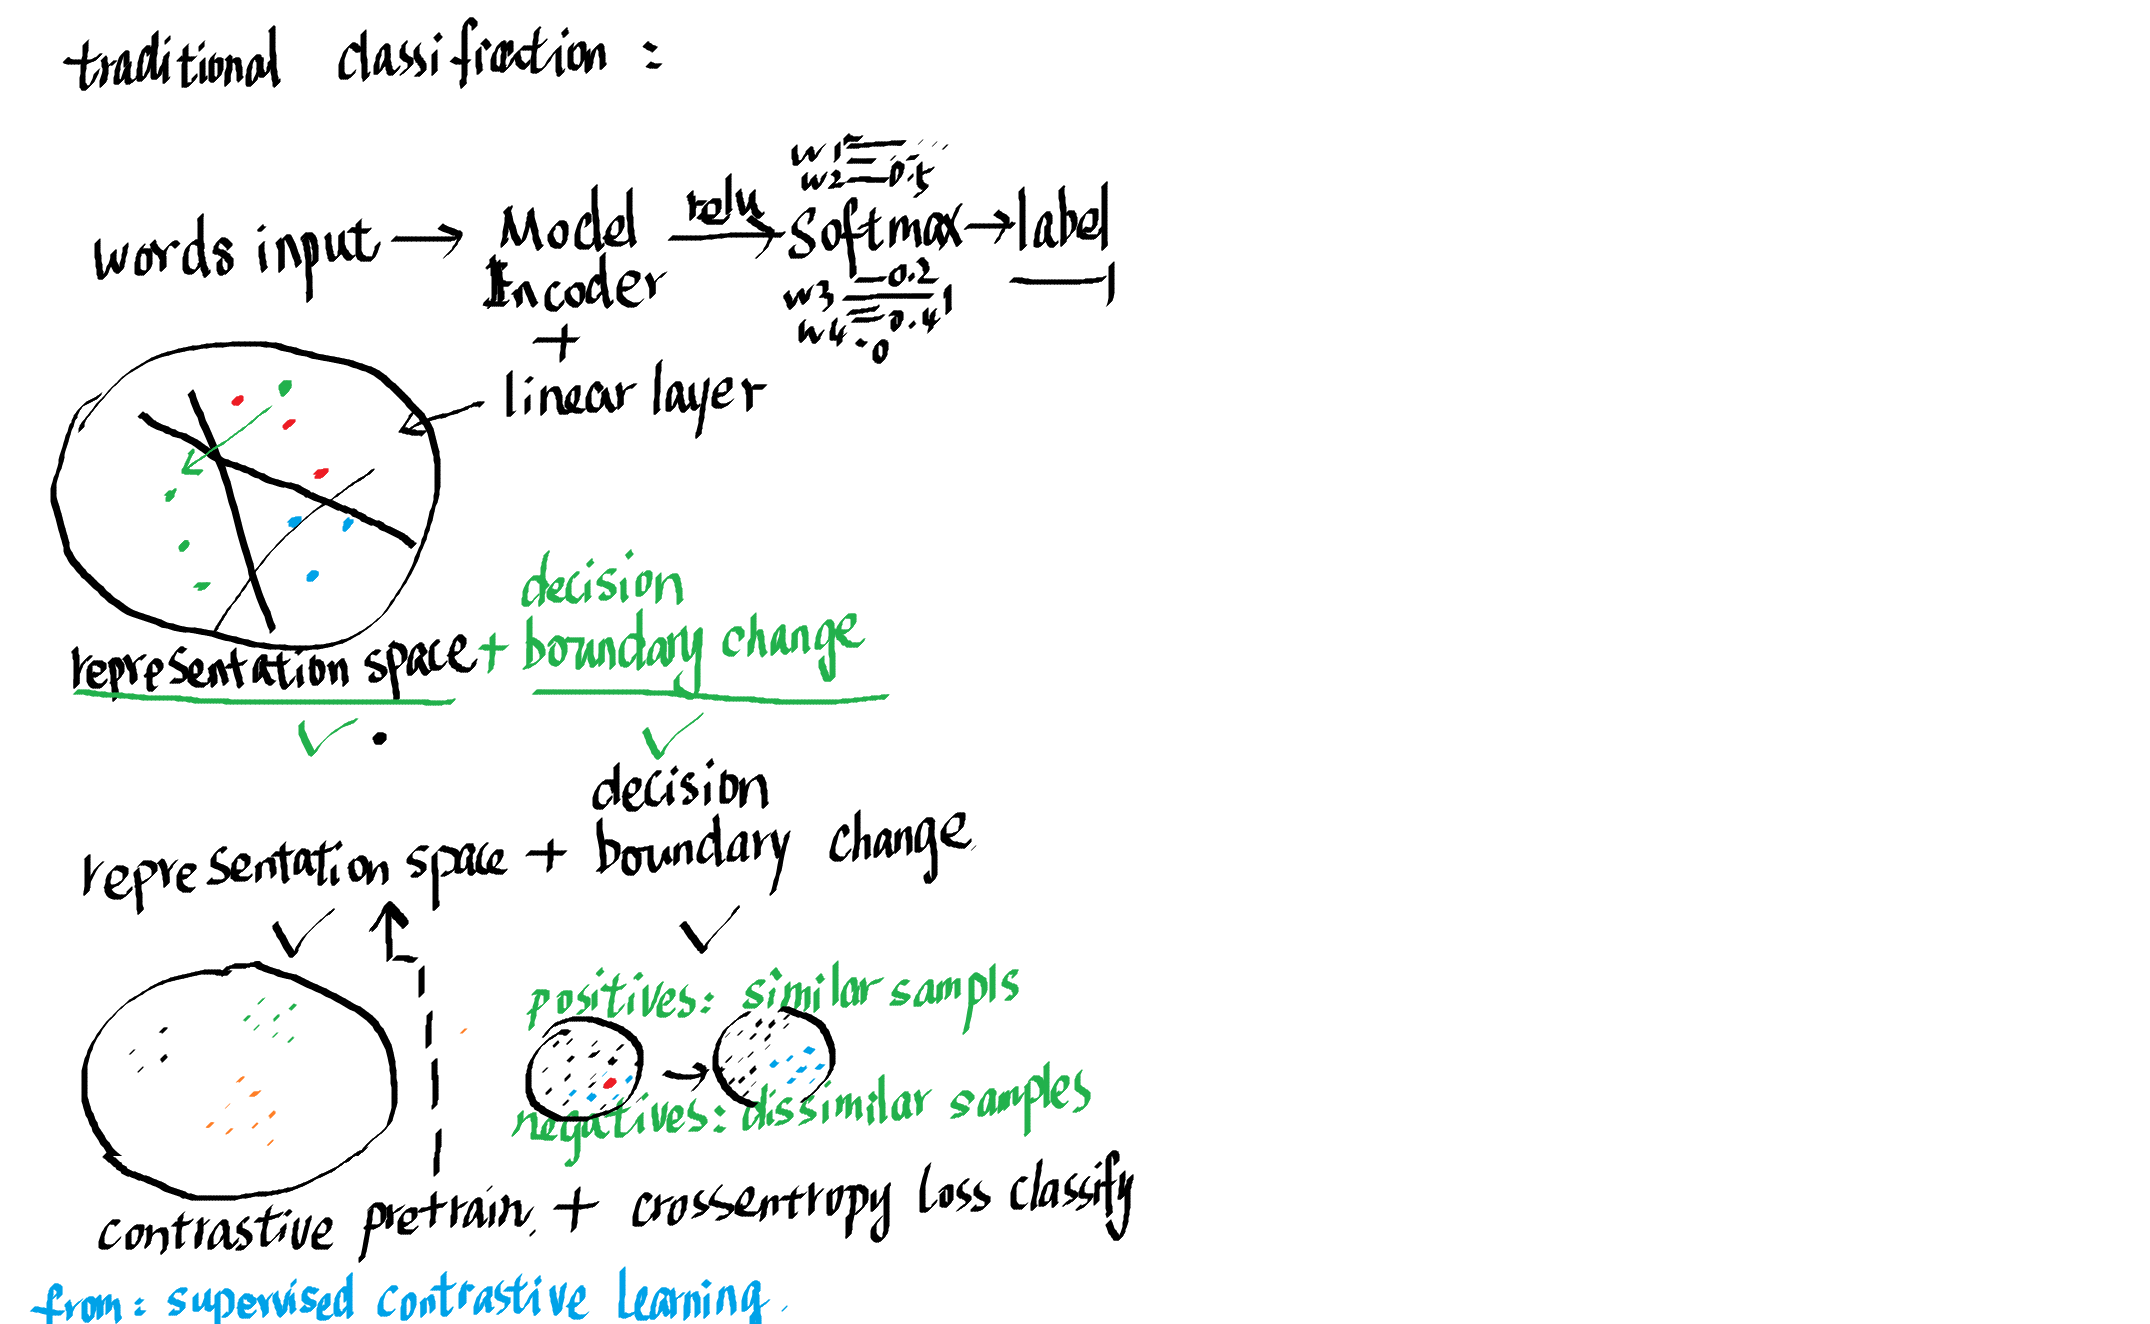 traditional classification :
words input → Model Encoder + linear layer
relu
w1 =
w2 = 0.5
Softmax → label
w3 = 0.2
w4 = 0.4
0
1
representation space + decision boundary change
representation space + decision boundary change
positives: similar sampls
negatives: dissimilar samples
contrastive pretrain + crossentropy loss classify
from: supervised contrastive learning